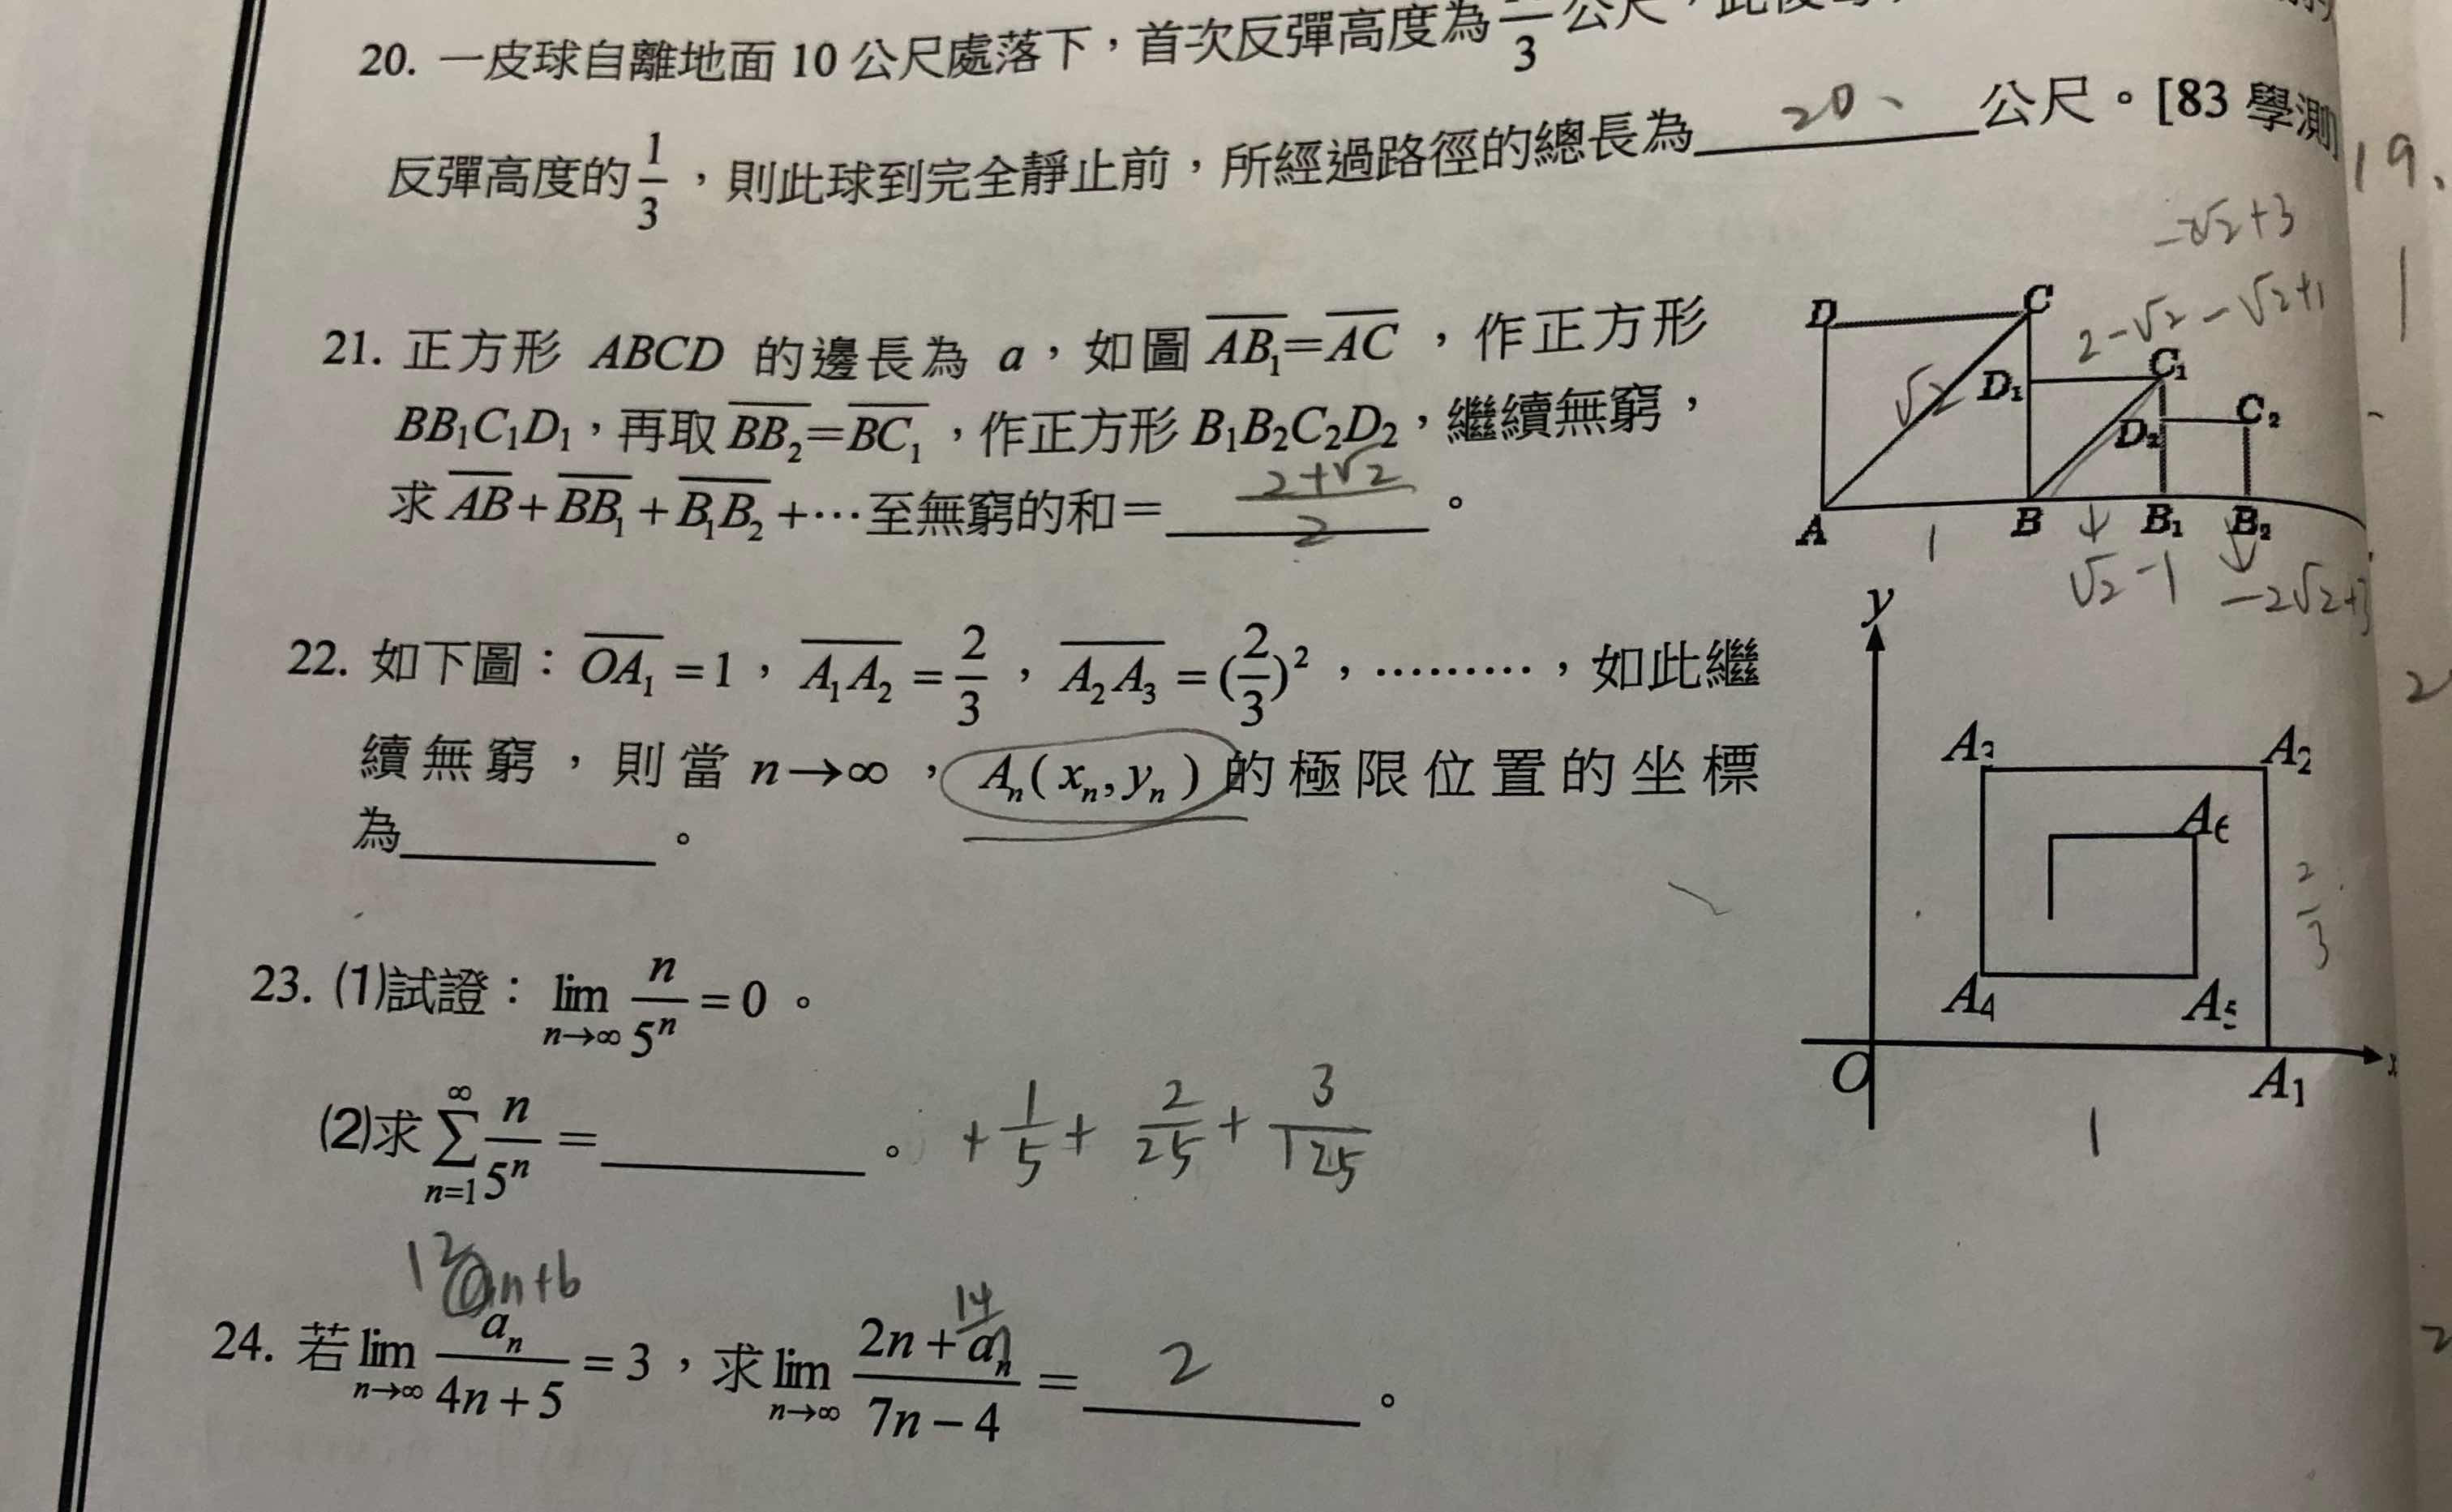 20. 一皮球自離地面 10 公尺處落下，首次反彈高度為 —/3 公尺，此後
反彈高度的 1/3，則此球到完全靜止前，所經過路徑的總長為 20、 公尺。[83 學測
19、
-2√2+3
2-√2-√2+1
21. 正方形 ABCD 的邊長為 a，如圖 AB₁=AC，作正方形
BB₁C₁D₁，再取 BB₂=BC₁，作正方形 B₁B₂C₂D₂，繼續無窮，
求 AB+BB₁+B₁B₂+⋯至無窮的和= (2+√2)/2 。
D C
√2 D₁ C₁
D₂ C₂
A B B₁ B₂
1 √2-1 -2√2+3
22. 如下圖：OA₁=1，A₁A₂=2/3，A₂A₃=(2/3)²，⋯⋯⋯，如此繼
續無窮，則當 n→∞，Aₙ(xₙ,yₙ) 的極限位置的坐標
為 。
y
A₃ A₂
A₆
2/3
A₄ A₅
O A₁ x
1
23. (1)試證：lim n→∞ n/5ⁿ=0。
(2)求 ∑ n=1 ∞ n/5ⁿ= 。 +1/5+2/25+3/125
12 an+b
24. 若 lim n→∞ aₙ/(4n+5)=3，求 lim n→∞ (2n+aₙ)/(7n-4)= 2 。
14